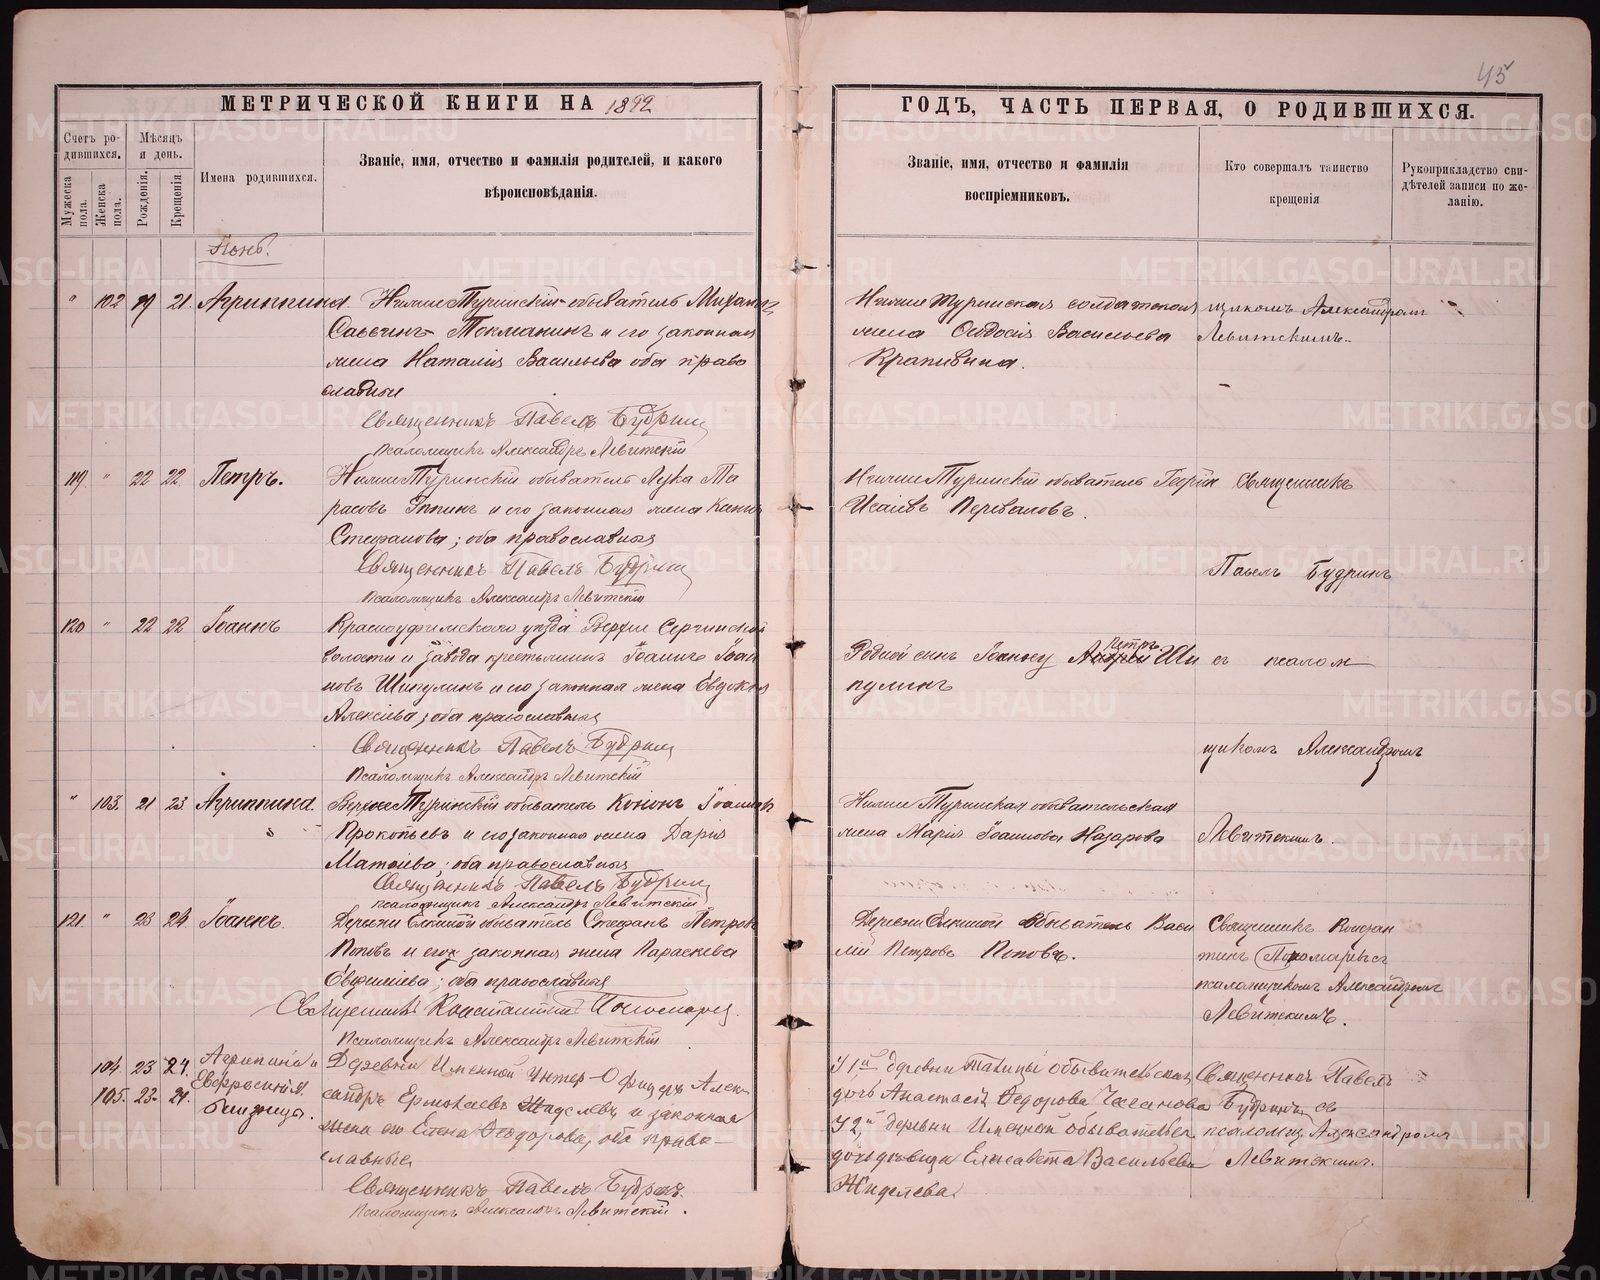 45
МЕТРИЧЕСКОЙ КНИГИ НА 1892
ГОДЪ, ЧАСТЬ ПЕРВАЯ, О РОДИВШИХСЯ.
Счетъ ро-
дившихся.
Мужеска
пола.
Женска
пола.
Мѣсяцъ
и день.
Рожденія.
Крещенія.
Имена родившихся.
Званіе, имя, отчество и фамилія родителей, и какого
вѣроисповѣданія.
Званіе, имя, отчество и фамилія
воспріемниковъ.
Кто совершалъ таинство
крещенія
Рукоприкладство сви-
дѣтелей записи по же-
ланію.
" 102 19 21. Агриппина.
Нижне Туринскій обыватель Михаилъ
Саввинъ Токманинъ и его законная
жена Наталія Васильева оба право
славные
Священникъ Павелъ Будринъ
Псаломщикъ Александръ Левитскій
Нижне Туринская солдатская
жена Ѳеодосія Васильева
Крапивина.
щикомъ Александромъ
Левитскимъ.
119. " 22 22 Петръ.
Нижне Туринскій обыватель Лука Та
расовъ и его законная жена
Стефанова; оба православныя
Священникъ Павелъ Будринъ
Псаломщикъ Александръ Левитскій
Нижне Туринскій обыватель Георгій
Исаіевъ Переваловъ.
Священникъ
Павелъ Будринъ
120 " 22 22 Іоаннъ
Красноуфимскаго уѣзда Верхне Сергинской
волости и завода крестьянинъ Іоаннъ Іоан
новъ Шипулинъ и его законная жена Евдокія
Алексіева; оба православныя
Священникъ Павелъ Будринъ
Псаломщикъ Александръ Левитскій
Родной сынъ Іоанну Андрей Петръ Ши
пулинъ
съ псалом
щикомъ Александромъ
Левитскимъ.
" 103. 21 23 Агриппина.
Верхне Туринскій обыватель Кононъ Іоаннов
Прокопьевъ и его законная жена Дарія
Матѳіева; оба православныя
Священникъ Павелъ Будринъ
Псаломщикъ Александръ Левитскій
Нижне Туринская обывательская
жена Марія Іоаннова Назарова
121. " 23 24 Іоаннъ.
Деревни Елкиной обыватель Стефанъ Петров
Поповъ и его законная жена Параскева
Евфиміева; оба православныя
Священникъ Константинъ Пономаревъ.
Псаломщикъ Александръ Левитскій
Деревни Елкиной обыватель Васи
лій Петровъ Поповъ.
Священникъ Констан
тинъ Пономаревъ съ
псаломщикомъ Александромъ
Левитскимъ.
104. 23 24. Агрипина и
105. 23. 24. Евфросинія.
близнецы.
Деревни Именной Унтеръ-Офицеръ Алек-
сандръ Ермолаевъ Жиделевъ и законная
жена его Елена Ѳеодорова, оба право-
славные
Священникъ Павелъ Будринъ.
Псаломщикъ Александръ Левитскій.
У 1й деревни Талицы обывательская
дочь Анастасія Ѳедорова Чаганова
У 2й деревни Именной обывателя
дочь дѣвица Елисавета Васильева
Жиделева
Священникъ Павелъ
Будринъ съ
псаломщ. Александромъ
Левитскимъ.
METRIKI.GASO-URAL.RU